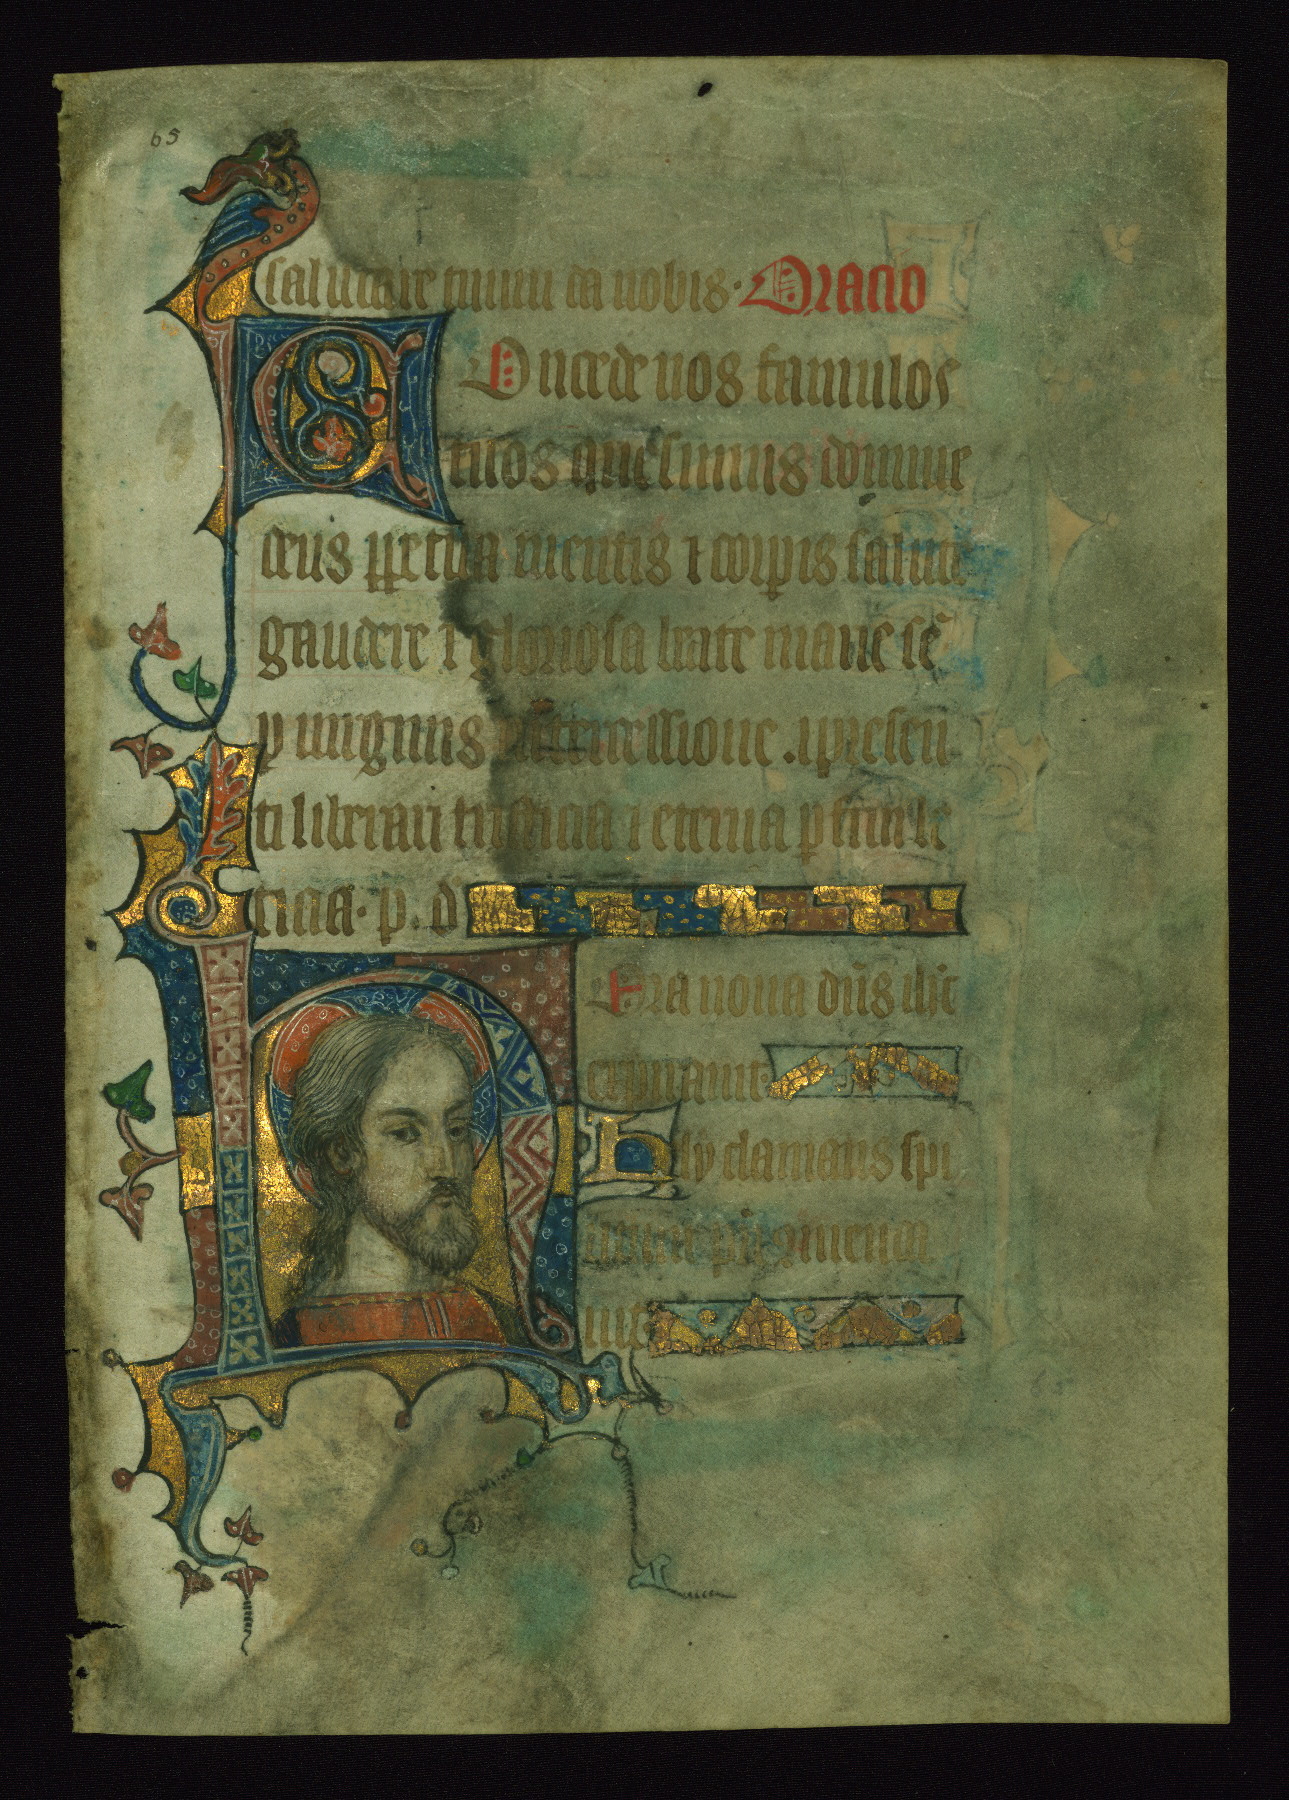 65
salutare tuum da nobis. Oracio
Concede nos famulos
tuos quesumus domine
deus ppetua mentis ⁊ corpis salute
gaudere ⁊ gloriosa beate marie sē
p uirginis intercessione . ⁊ presen
ti liberari tristicia ⁊ eterna pfrui le
ticia. p. d
Hora nona dn̄s ihc
expirauit.
Hely clamans